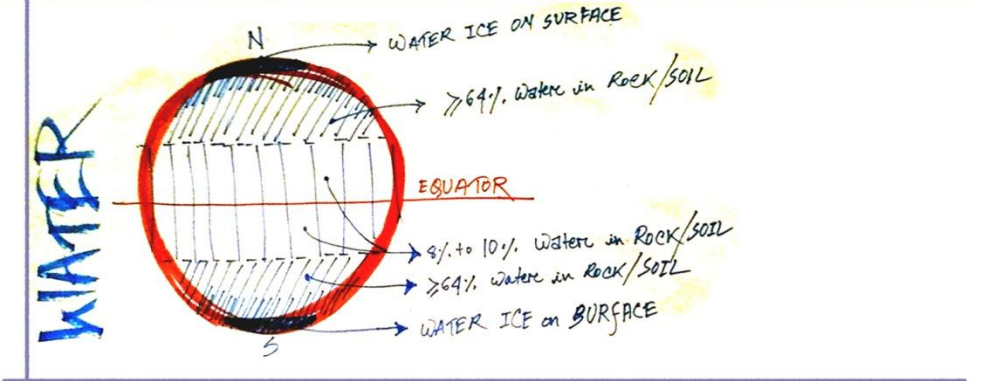 WATER
N
WATER ICE ON SURFACE
≥64% Water in ROCK/SOIL
EQUATOR
8% to 10% Water in ROCK/SOIL
≥64% Water in ROCK/SOIL
WATER ICE on BURFACE
S